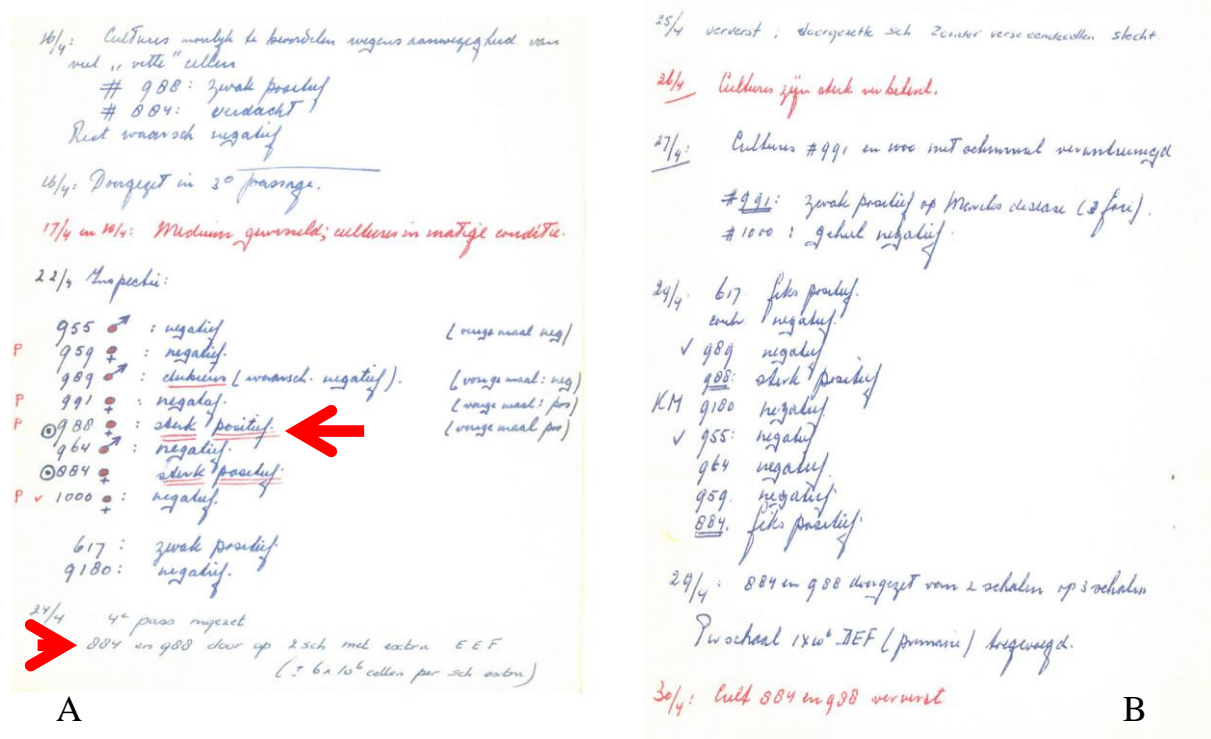 16/4: Cultures moeilijk te beoordelen wegens aanwezigheid van
veel „vette" cellen
# 988: zwak positief
# 884: verdacht
Rest waarsch negatief
16/4: Doorgezet in 3e passage.
17/4 en 18/4: Medium gewisseld; cultures in matige conditie.
22/4 Inspectie:
955 ♂ : negatief (vorige maal neg)
P 959 ♀ : negatief.
989 ♂ : dubieus (waarsch. negatief). (vorige maal: neg)
P 991 ♀ : negatief. (vorige maal: pos)
P 988 ♀ : sterk positief. (vorige maal pos)
964 ♂ : negatief.
884 ♀ : sterk positief.
P v 1000 ♀ : negatief.
617 : zwak positief.
9180 : negatief.
24/4 4e pass ingezet
884 en 988 door op 2 sch met extra E.E.F
(± 6 x 10⁶ cellen per sch extra)
A
25/4 ververst ; doorgezette sch zonder verse eendecellen slecht.
26/4 Cultures zijn sterk verbeterd.
27/4: Cultures #991 en 1000 met schimmel verontreinigd
#991: zwak positief op Mareks disease (2 foci).
#1000 : geheel negatief.
29/4. 617 fiks positief.
contr. negatief.
✓ 989 negatief
988: sterk positief
KM 9180 negatief.
✓ 955: negatief
964 negatief.
959. negatief.
884. fiks positief.
29/4 : 884 en 988 doorgezet van 2 schalen op 3 schalen
Per schaal 1x10⁶ DEF (primaire) toegevoegd.
30/4: Cult 884 en 988 ververst
B